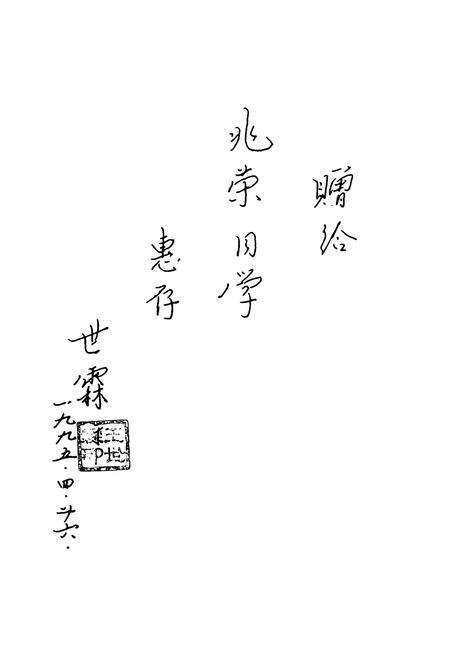 赠给
兆荣同学
惠存
世霖
一九九五·四·廿六·